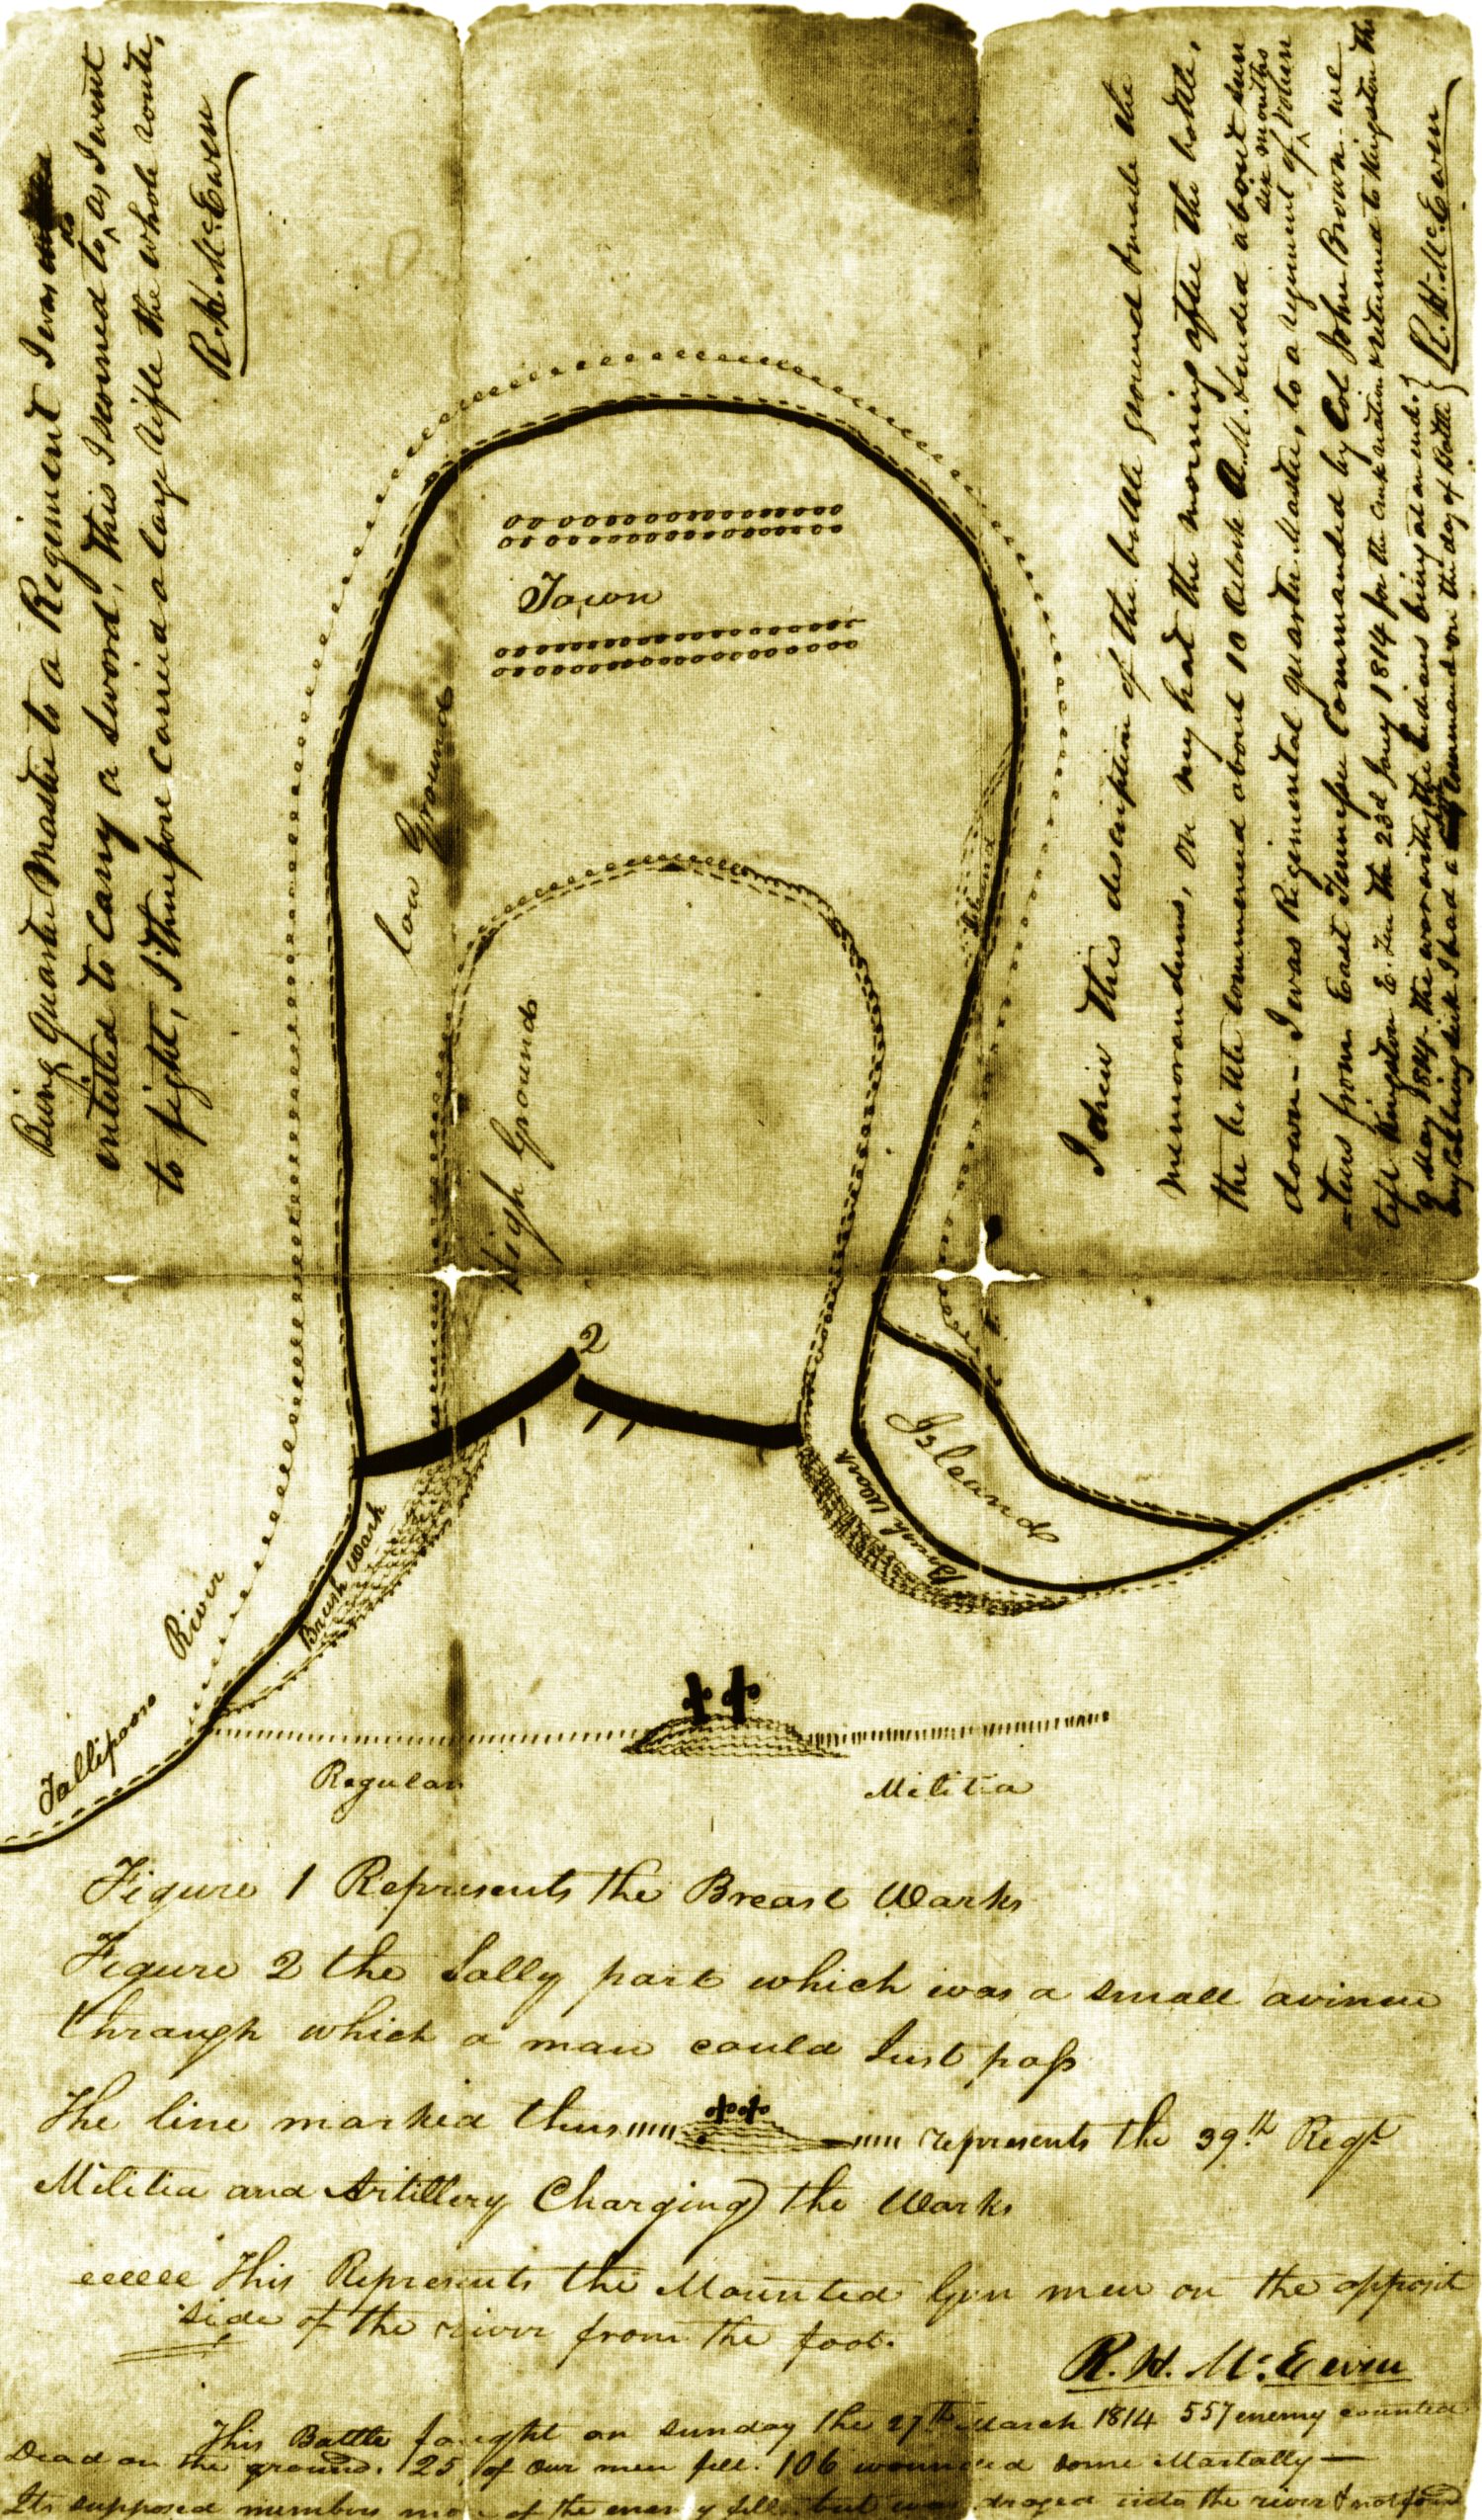 Being Quarter Master to a Regiment I was
entitled to Carry a Sword, this I scorned to do as I went
to fight, I therefore carried a large Rifle the whole route,
R. H. McEwen
I drew this description of the battle ground & made the
memorandums, on my hat the morning after the battle,
the battle commenced about 10 Oclock A.M. & ended about sun
down – I was Regimental quarter Master, to a regiment of six months Volun
=teers from East Tennessee Commanded by Col John Brown. we
left Kingston E. Ten the 23d Jany 1814 for the Creek nation & returned to Kingston the
9 May 1814. the war with the Indians being at an end.
my Col being sick I had a command on the day of Battle } R. H. McEwen
Town
Low Grounds
High Grounds
Island
2
1
Island
Brush Wark
Brush Wark
Tallipoosa River
Regulars
Militia
Figure 1 Represents the Breast Warks
Figure 2 the Sally part which was a small avinue
through which a man could Just pass
The line marked thus represents the 39th Regt
Militia and Artillery Charging the Warks
eeeeee This Represents the Mounted Gun men on the opposit
side of the river from the foot.
R. H. McEwen
This Battle fought on sunday the 27th March 1814 557 enemy counted
Dead on the ground. 25 of our men fell. 106 wounded some Martally —
Its supposed numbers more of the enemy fell. but was draged into the river & not found